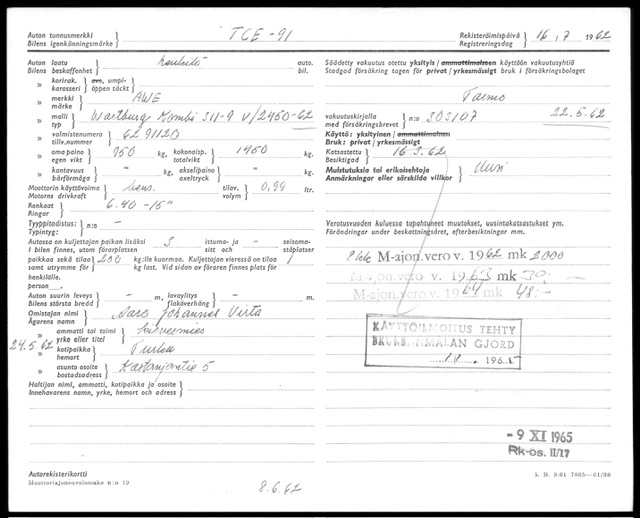 Auton tunnusmerkki
Bilens igenkänningsmärke
TCE-91
Rekisteröimispäivä
Registreringsdag
16/7 1962
Auton laatu
Bilens beskaffenhet
auto.
bil.
» korirakt. avo, umpi-
karosseri öppen täckt
» merkki
märke
AWE
» malli
typ
Wartburg Kombi 311-9 v/2450-62
» valmistenumero
tillv.nummer
6291120
» oma paino
egen vikt
950 kg,
kokonaisp.
totalvikt
1450 kg.
» kantavuus
bärförmåga
– kg,
akselipaino
axeltryck
– kg.
Moottorin käyttövoima
Motorns drivkraft
bens.
tilav.
volym
0,99 ltr.
Renkaat
Ringar
6.40-15"
Tyyppitodistus:
Typintyg:
n:o –
Autossa on kuljettajan paikan lisäksi
I bilen finnes, utom förarplatsen
3
istuma- ja
sitt- och
–
seisoma-
ståplatser
paikkaa sekä tilaa
samt utrymme för
200
kg:lle kuormaa. Kuljettajan vieressä on tilaa
kg last. Vid sidan av föraren finnes plats för
henkilölle.
person
Auton suurin leveys
Bilens största bredd
– m,
lavaylitys
flaköverhäng
– m.
Omistajan nimi
Ägarens namn
Aaro Johannes Virta
» ammatti tai toimi
yrke eller titel
24.5 62
» kotipaikka
hemort
Turku
» asunto osoite
bostadsadress
Kastanjantie 5
Haltijan nimi, ammatti, kotipaikka ja osoite
Innehavarens namn, yrke, hemort och adress
Autorekisterikortti
Moottoriajoneuvolomake n:o 19
8.6.62
Säädetty vakuutus otettu yksityis/ammattimaiseen käyttöön vakuutusyhtiö
Stadgad försäkring tagen för privat/yrkesmässigt bruk i försäkringsbolaget
Tarmo
vakuutuskirjalla
med försäkringsbrevet
n:o 303107
22.5.62
Käyttö: yksityinen/ammattimainen
Bruk: privat/yrkesmässigt
Katsastettu
Besiktigad
16.3.62
Muistutuksia tai erikoisehtoja
Anmärkningar eller särskilda villkor
Uusi
Verotusvuoden kuluessa tapahtuneet muutokset, uusintakatsastukset ym.
Förändringar under beskattningsåret, efterbesiktningar mm.
M-ajon.vero v. 1962 mk 2000
M-ajon.vero v. 1963 mk 30:-
M-ajon.vero v. 1964 mk 48:-
KÄYTTÖILMOITUS TEHTY
BRUKSANMÄLAN GJORD
196
- 9 XI 1965
Rk-os. II/17